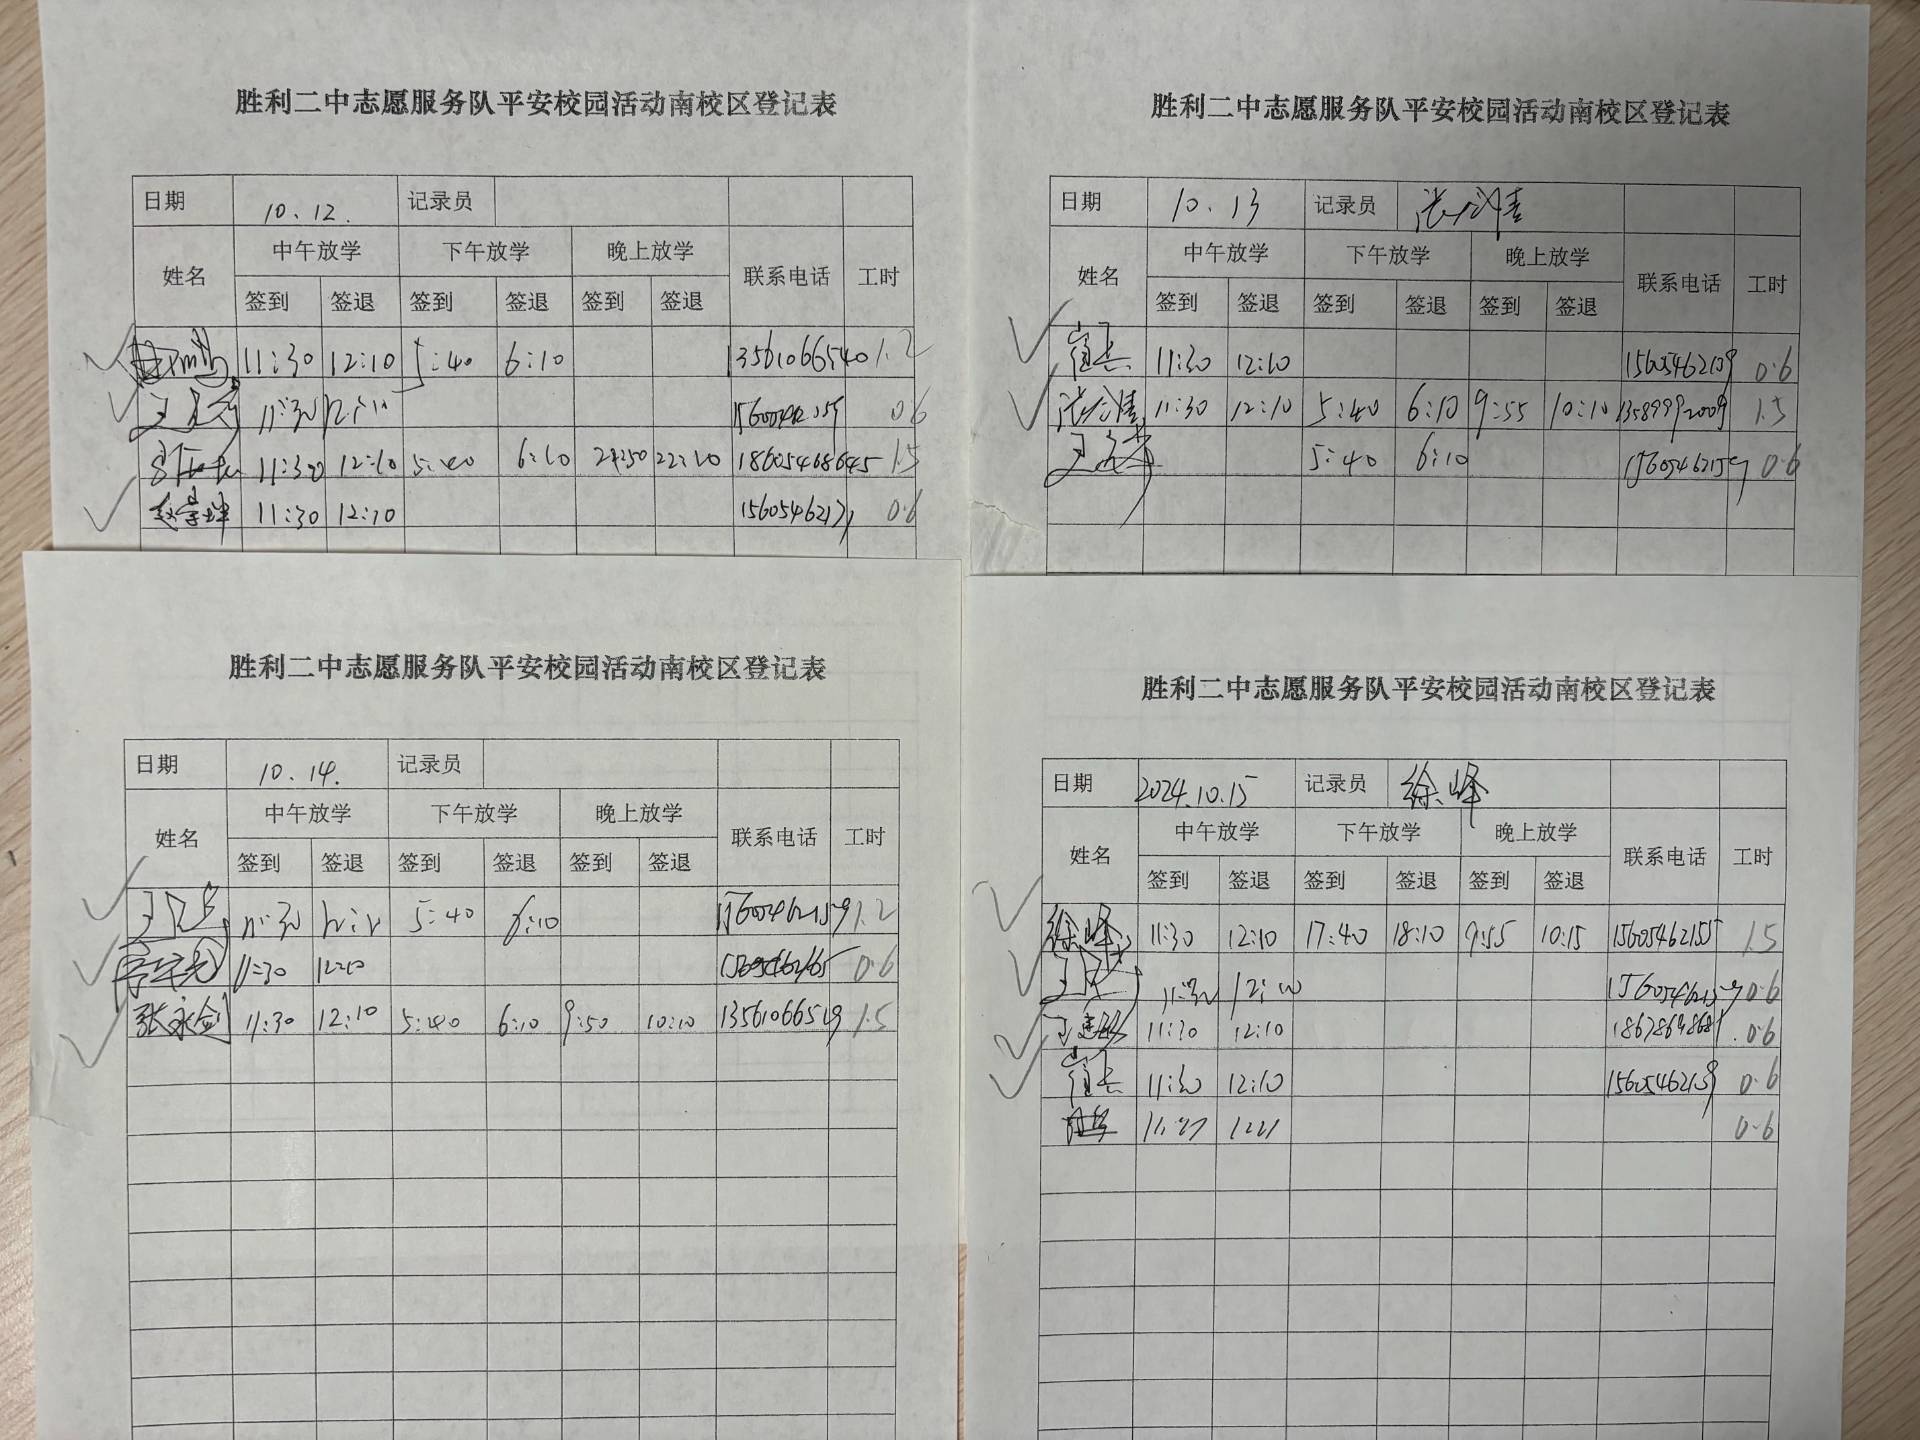 胜利二中志愿服务队平安校园活动南校区登记表
日期 10.12. 记录员
姓名 中午放学 下午放学 晚上放学 联系电话 工时
签到 签退 签到 签退 签到 签退
11:30 12:10 5:40 6:10 13561066540 1.2
11:30 0.6
11:30 12:10 5:40 6:10 21:50 22:10 18605468645 1.5
赵宗坤 11:30 12:10 0.6
胜利二中志愿服务队平安校园活动南校区登记表
日期 10.13 记录员
姓名 中午放学 下午放学 晚上放学 联系电话 工时
签到 签退 签到 签退 签到 签退
11:30 12:10 15605462139 0.6
11:30 12:10 5:40 6:10 9:55 10:10 13589992009 1.5
5:40 6:10 15605462159 0.6
胜利二中志愿服务队平安校园活动南校区登记表
日期 10.14. 记录员
姓名 中午放学 下午放学 晚上放学 联系电话 工时
签到 签退 签到 签退 签到 签退
11:30 5:40 6:10 15605462159 1.2
11:30 12:10 0.6
张永剑 11:30 12:10 5:40 6:10 9:50 10:10 13561066519 1.5
胜利二中志愿服务队平安校园活动南校区登记表
日期 2024.10.15 记录员 徐峰
姓名 中午放学 下午放学 晚上放学 联系电话 工时
签到 签退 签到 签退 签到 签退
徐峰 11:30 12:10 17:40 18:10 9:55 10:15 15605462155 1.5
11:30 12:10 15605462159 0.6
11:30 12:10 0.6
11:30 12:10 15605462139 0.6
0.6